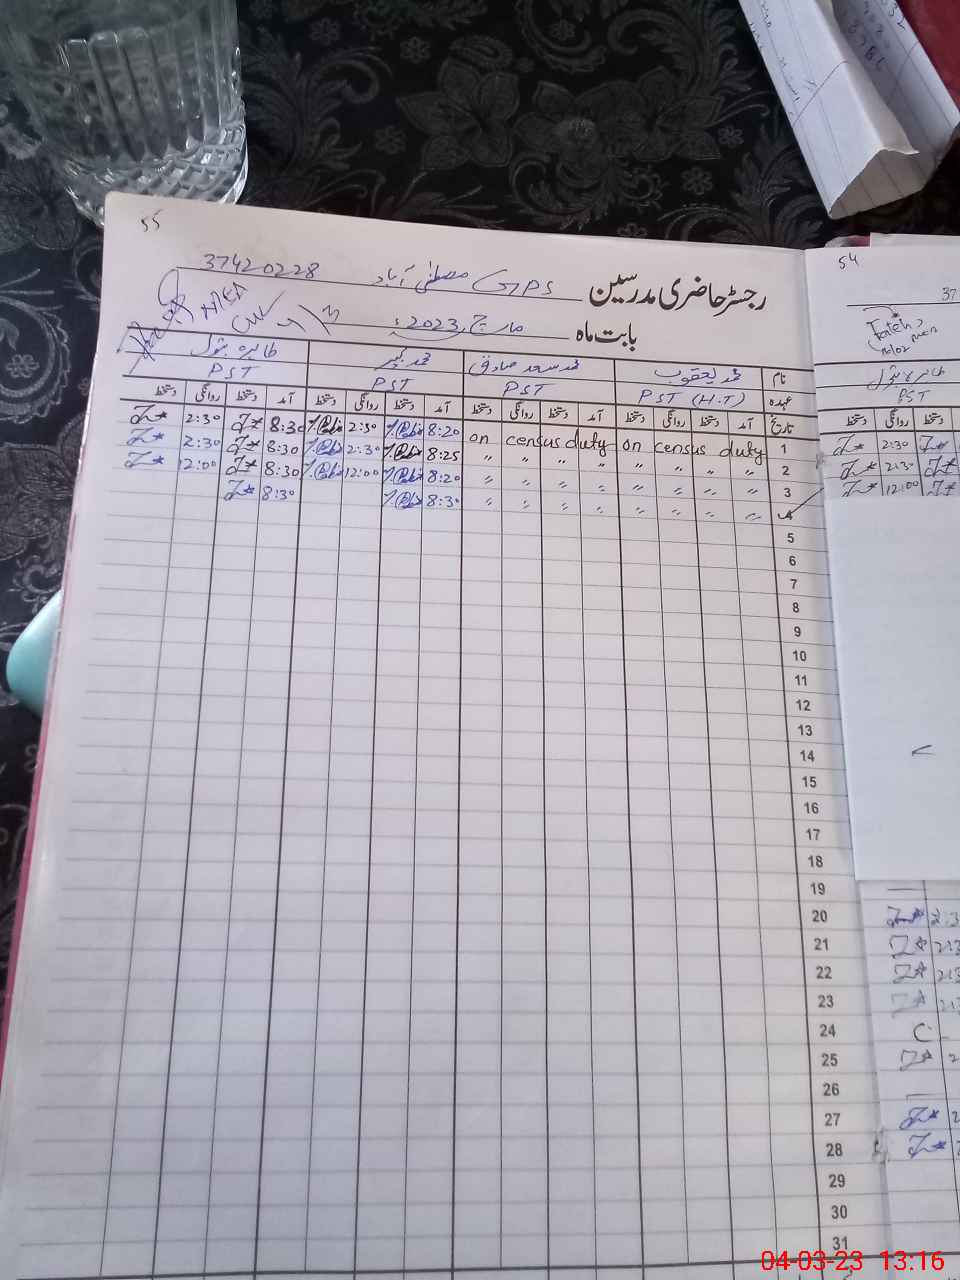 55
37420228
GPS مصطفٰی آباد
رجسٹر حاضری مدرسین
بابت ماہ مارچ 2023ء
AEA
نام محمد یعقوب محمد سعد صادق محمد کبیر طاہرہ بتول
عہدہ PST (H.T) PST PST PST
تاریخ آمد دستخط روانگی دستخط آمد دستخط روانگی دستخط آمد دستخط روانگی دستخط آمد دستخط روانگی دستخط
1 on census duty on census duty 8:20 2:30 8:30 2:30
2 〃 〃 〃 〃 〃 〃 〃 〃 8:25 2:30 8:30 2:30
3 〃 〃 〃 〃 〃 〃 〃 〃 8:20 12:00 8:30 12:00
4 〃 〃 〃 〃 〃 〃 〃 〃 8:30 8:30
5
6
7
8
9
10
11
12
13
14
15
16
17
18
19
20
21
22
23
24
25
26
27
28
29
30
31
54
37
طاہرہ بتول
PST
دستخط روانگی دستخط
2:30
2:30
12:00
C
04-03-23 13:16